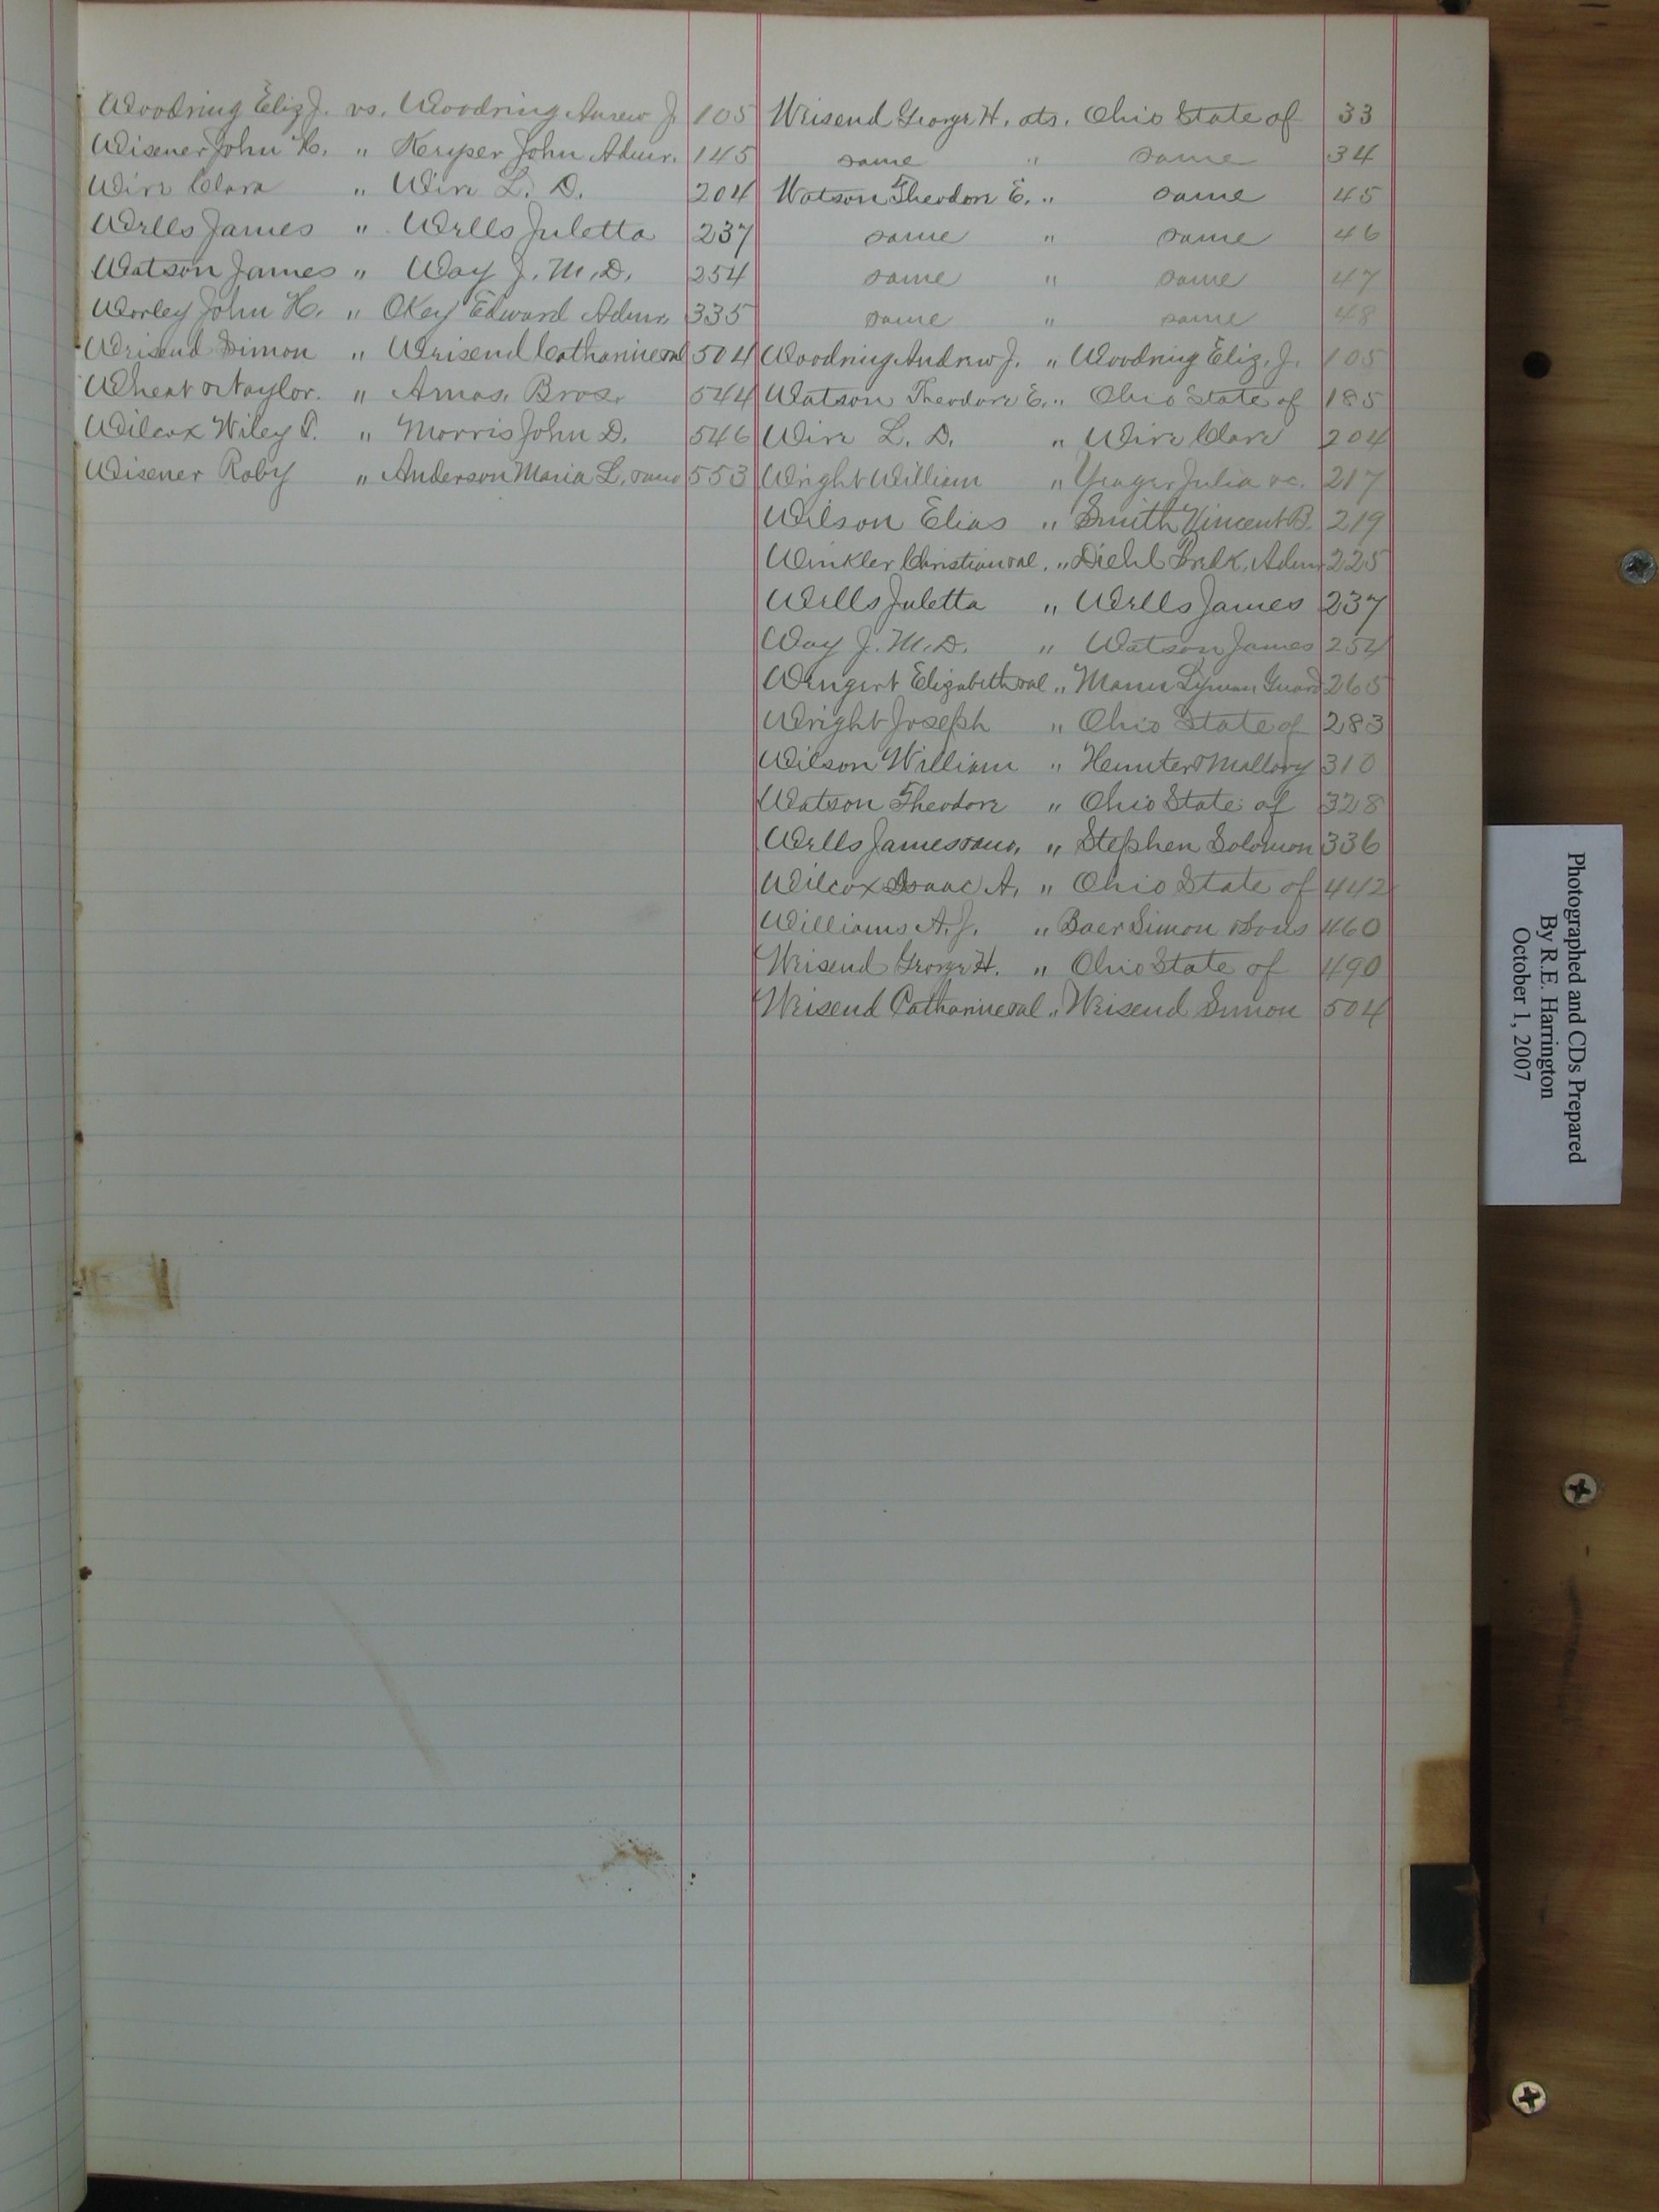 Woodring Eliz J. vs. Woodring Anrew J 105
Wisener John H. " Keryper John Admr. 145
Wire Clara " Wire L. D. 204
Wells James " Wells Juletta 237
Watson James " Way J. M. D. 254
Worley John H. " Okey Edward Admr. 335
Weisend Simon " Weisend Catharine et al 504
Wheat & Naylor. " Amos. Bros. 544
Wilcox Wiley " Morris John D. 546
Wisener Roby " Anderson Maria L. 553
Weisend George H. ats. Ohio State of 33
same " same 34
Watson Theodore E. " same 45
same " same 46
same " same 47
same " same 48
Woodring Andrew J. " Woodring Eliz. J. 105
Watson Theodore E. " Ohio State of 185
Wire L. D. " Wire Clara 204
Wright William " Yeager Julia vs. 217
Wilson Elias " Smith Vincent B. 219
Winkler Christian et al. " Diehl Fredk. Admr 225
Wells Juletta " Wells James 237
Way J. M. D. " Watson James 254
Wengert Elizabeth et al " Mann Lyman Guard 265
Wright Joseph " Ohio State of 283
Wilson William " Hunter & Mallory 310
Watson Theodore " Ohio State of 328
Wells James " Stephen Solomon 336
Wilcox Isaac A. " Ohio State of 442
Williams A. J. " Baer Simon & Sons 460
Weisend George H. " Ohio State of 490
Weisend Catharine et al " Weisend Simon 504
Photographed and CDs Prepared
By R.E. Harrington
October 1, 2007